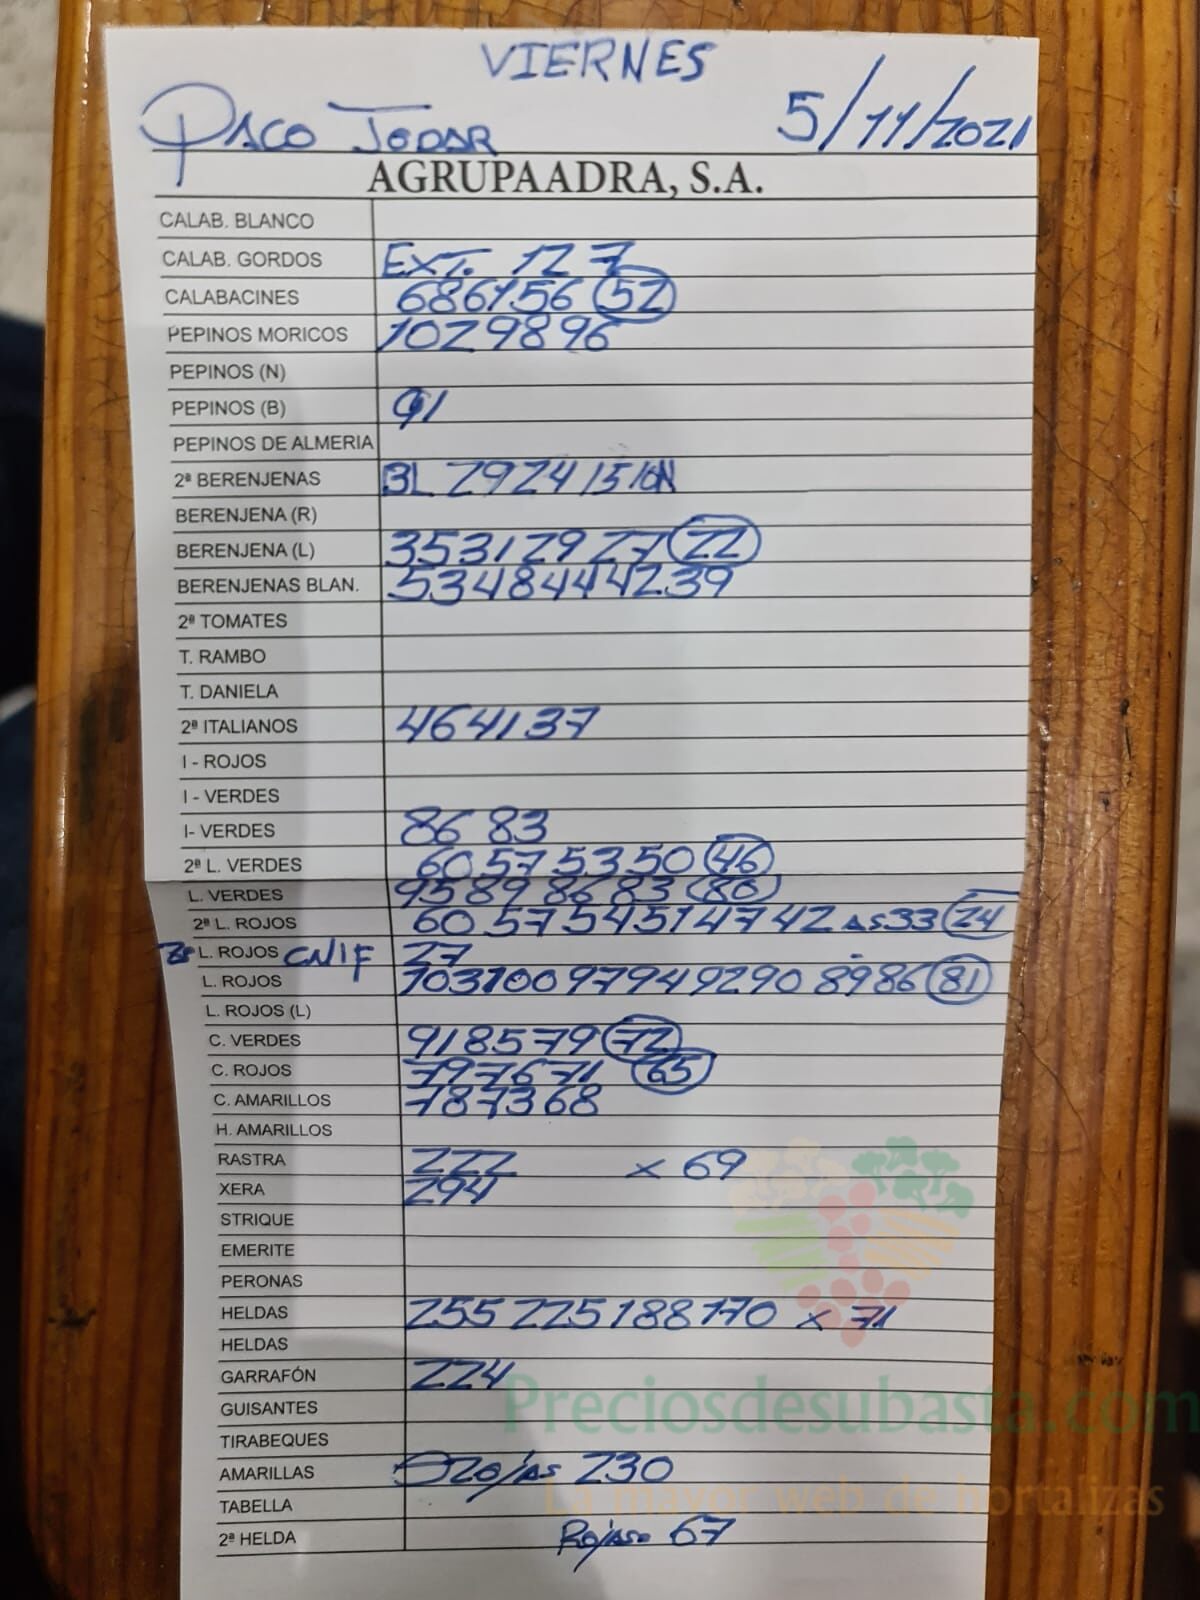 VIERNES
PACO JODAR 5/11/2021
AGRUPAADRA, S.A.
CALAB. BLANCO
CALAB. GORDOS EXT. 127
CALABACINES 686156 52
PEPINOS MORICOS 1029896
PEPINOS (N)
PEPINOS (B) 91
PEPINOS DE ALMERIA
2ª BERENJENAS BL 2924 15 10N
BERENJENA (R)
BERENJENA (L) 35312927 22
BERENJENAS BLAN. 5348444239
2ª TOMATES
T. RAMBO
T. DANIELA
2ª ITALIANOS 464137
I - ROJOS
I - VERDES
I- VERDES 86 83
2ª L. VERDES 60575350 46
L. VERDES 95898683 80
2ª L. ROJOS 60 5754514742 AS33 24
L. ROJOS CNIF 27
L. ROJOS 103100979492908986 81
L. ROJOS (L)
C. VERDES 918579 72
C. ROJOS 797671 65
C. AMARILLOS 787368
H. AMARILLOS
RASTRA 222 x 69
XERA 294
STRIQUE
EMERITE
PERONAS
HELDAS 255 225 188 170 x 71
HELDAS
GARRAFÓN 224
GUISANTES
TIRABEQUES
AMARILLAS 230
TABELLA
2ª HELDA Rojas 67
Preciosdesubasta.com
La mayor web de hortalizas